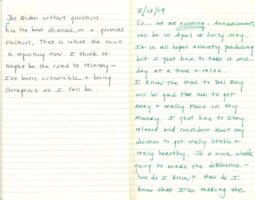 Joe Biden without question
has the best chance in a general
election. That is what the news
is reporting now. I think it
might be the road to recovery—
I've been vulnerable + being
courageous as I can be.
8/12/19
So... we are running. Announcement
will be in April or early May.
It is all super anxiety producing
but I just have to take it one
day at a time + relax.
I know the move to Del Ray
will be good for me to get
away + really focus on my
recovery. I just have to stay
relaxed and confident about my
decision to get really stable +
really healthy. Is a move what's
going to make the difference—
how do I know? How do I
know that I'm making the